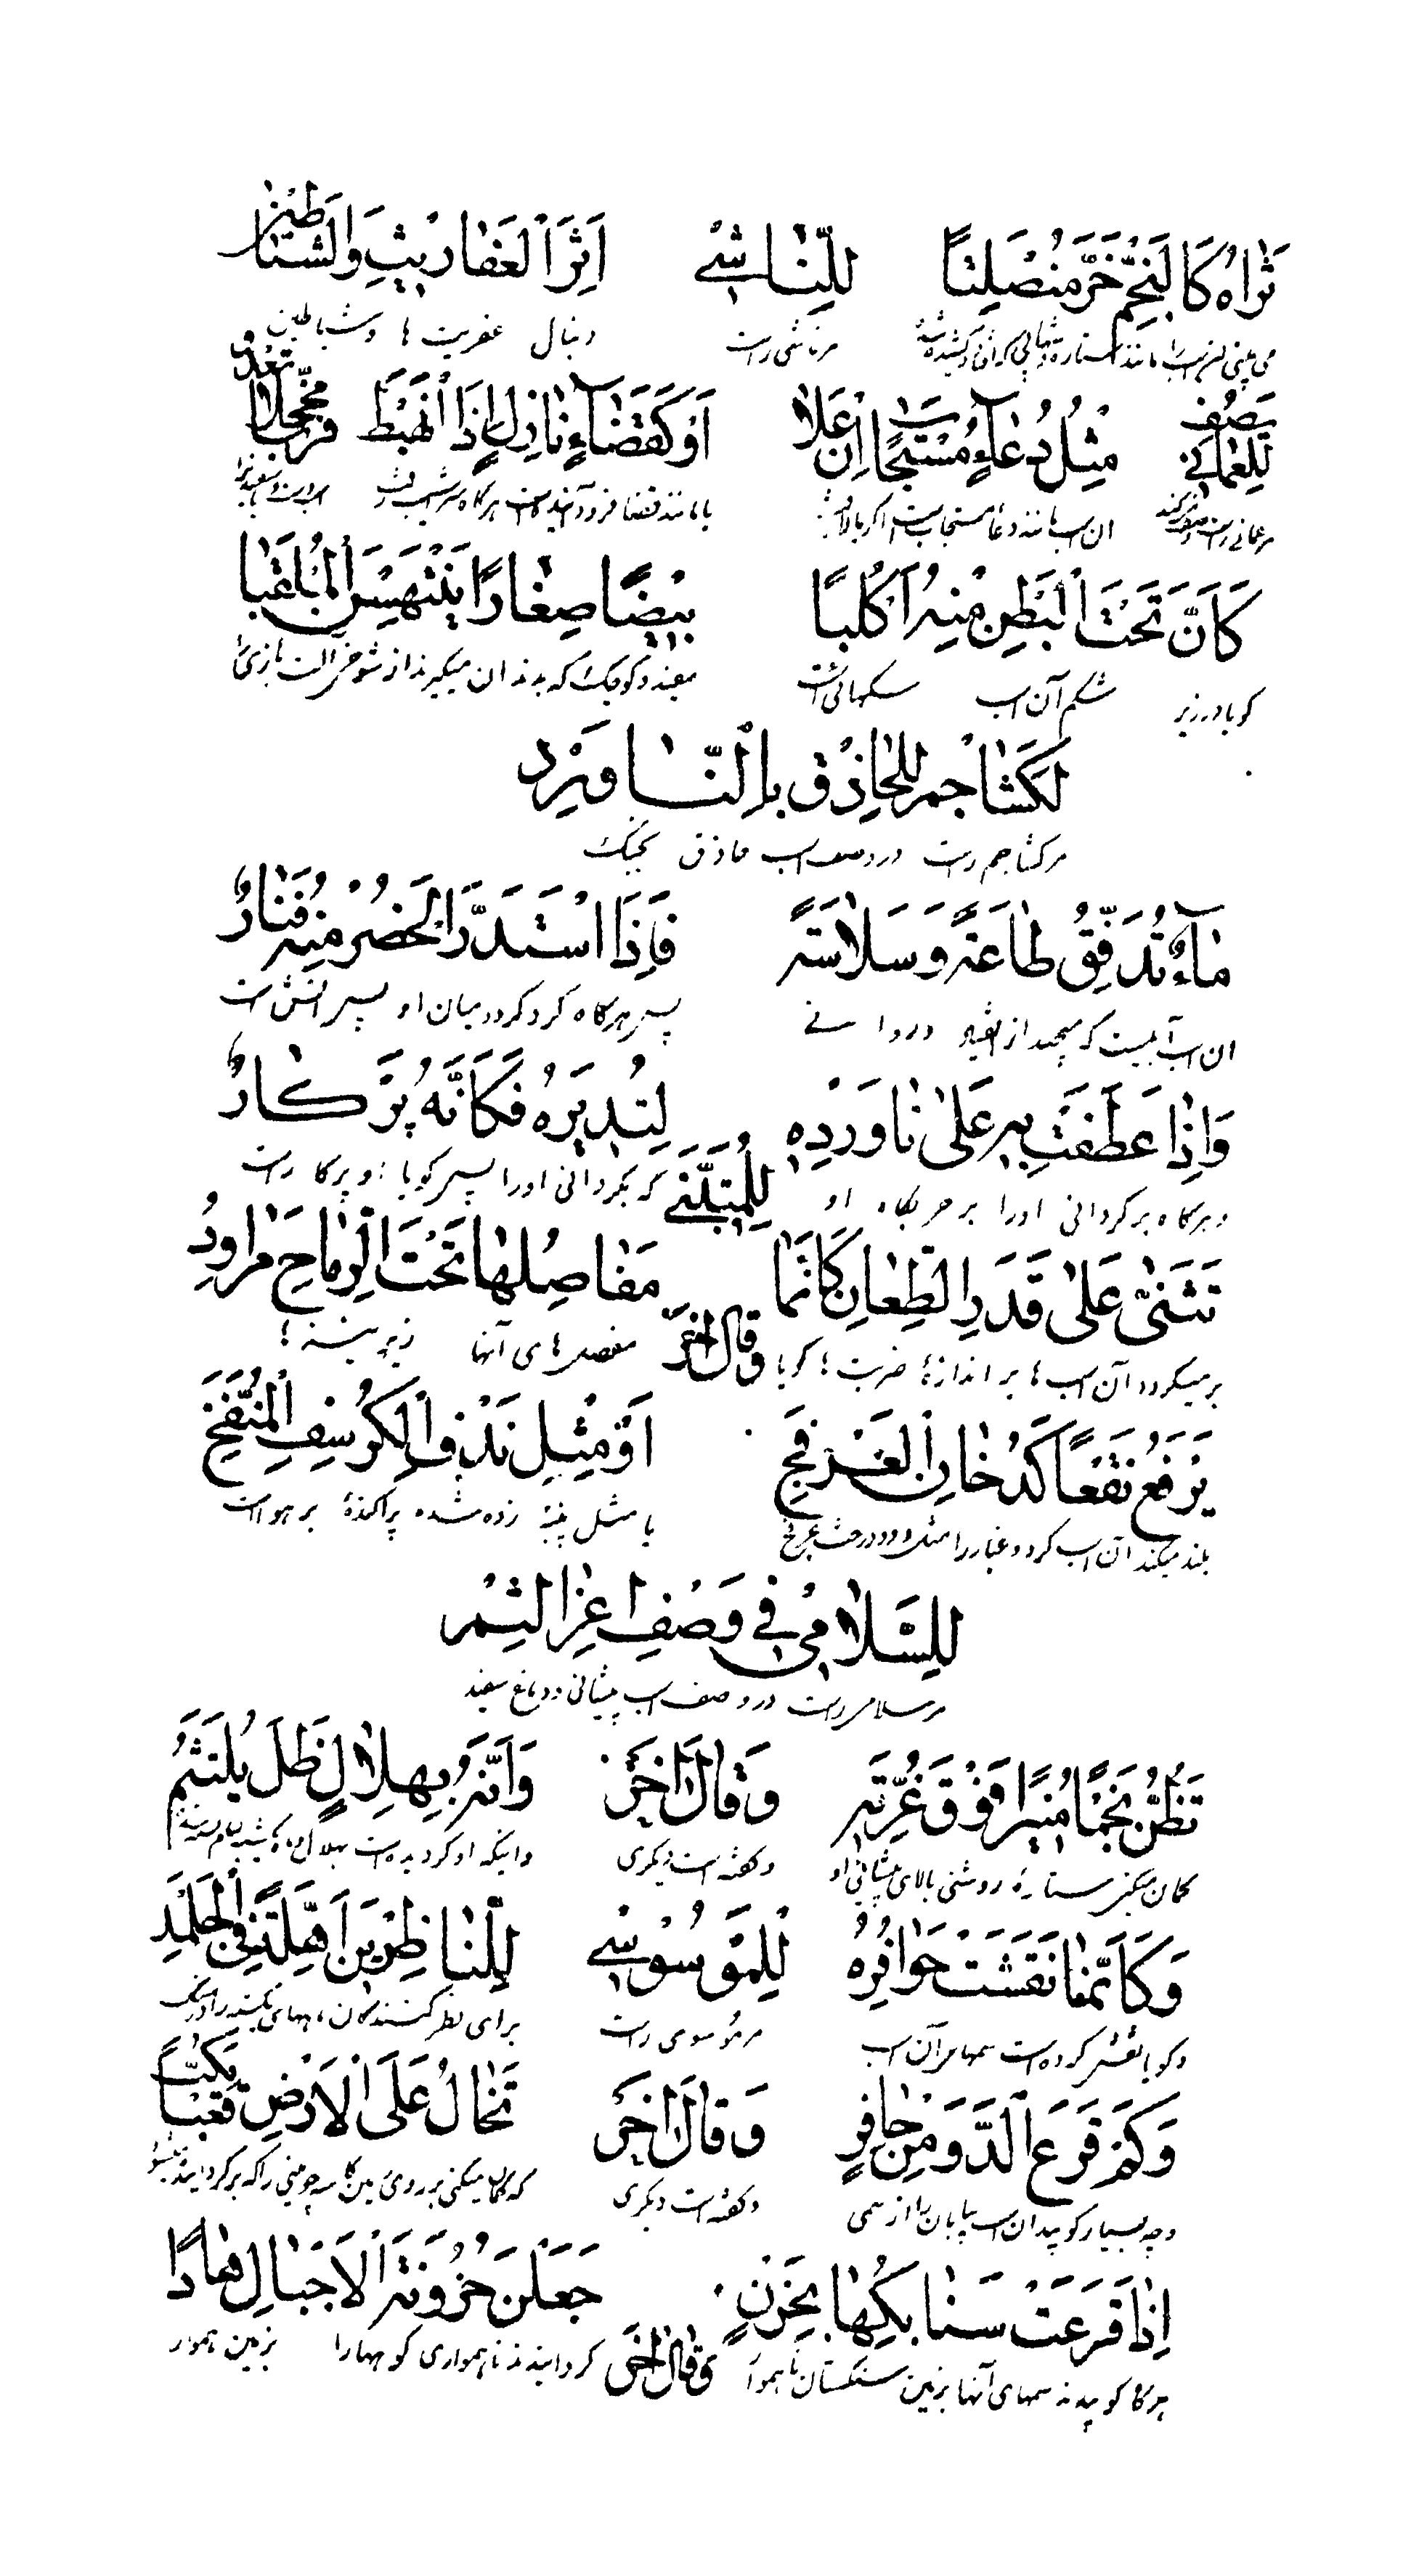 تَرٰاهُ كَالنَّجْمِ خَرَّ مُنْصَلِتاً للِنّٰاشئ اَثَرَ الْعَفٰاريٖتِ وَالشَّيٰاطٖينِ
می بینی آن اسب را مانند ستاره دنباله مر ناشی راست دنبال عفریت ها و شیاطین
لِلْعُمٰانی يَصِفُ مِثْلُ دُعٰآءٍ مُسْتَجٰابٍ اِنْ عَلاٰ اَوْ كَقَضٰآءٍ نٰازِلٍ اِذٰا انْهَبَطَ
مر عمانی راست آن اسب مانند دعاء مستجاب است اگر بالا رود یا مانند قضا فرود آینده است هرگاه سرنشیب رفت
كَاَنَّ تَحْتَ الْبَطْنِ مِنْهُ اَكْلُباً بيٖضاً صِغٰاراً يَنْتَهِسْنَ الْمَنْقَبٰا
گویا در زیر شکم آن اسب سگهائی است سفید و کوچک که بدندان میگیرند از شوخی
لِكَشٰاجم للحٰاذِق باِلنّٰاويَرْد
مر کشاجم راست در وصف اسب حاذق بجنگ
مٰآءٌ تُدَفِّقُ طٰاعَةً وَ سَلاٰسَةً فَاِذَا اسْتَدَرَّ الْحُضْرُ مِنْهُ فَنٰارٌ
آن اسب آبیست که میجهد از انقیاد و روانی پس هرگاه گرد گرد در میان او پس آتش است
وَاِذٰا عَطَفْتَ بِهٖ عَلىٰ نٰاوَرْدِهٖ لِتُديٖرَهُ فَكَاَنَّهُ پَرْكٰارٌ
و هرگاه برگردانی او را بر حربگاه او که بگردانی او را پس گویا او پرگار است
لِلْمُتَنَبّی
تَثَنّىٰ عَلىٰ قَدَرِ الطِّعٰانِ كَاَنَّمٰا مَفٰاصِلُهٰا تَحْتَ الرِّمٰاحِ مَرٰاوِدُ
بر میگردد آن اسب ها بر اندازهٔ ضربت ها گویا مفصل های آنها زیر نیزه ها
وَقٰالَ اٰخَرُ
يَرْفَعُ نَقْعاً كَدُخٰانِ الْعَرْفَجِ اَوْ مِثْلِ نَدْفِ الْكُرْسُفِ الْمُنَفَّخِ
بلند میکند آن اسب گرد و غبار را مثل دود درخت عرفج یا مثل پنبهٔ زده شده پراکندهٔ بر هوا است
للِسَّلاٰمیٖ فی وَصْفِ اغرّ الثم
مر سلامی راست در وصف اسب پیشانی و دماغ سفید
تَظُنُّ نَجْماً مُنيٖراً فَوْقَ غُرَّتِهٖ وَقٰالَ اٰخَرُ وَاَنَّهُ بِهِلاٰلٍ ظَلَّ يَلْتَثِمُ
گمان میکنی ستارهٔ روشنی بالای پیشانی او و گفته است دیگری و اینکه او گردیده است بهلال
وَكَاَنَّمٰا نَقَشَتْ حَوٰافِرُهُ لِلْمُوْسُوی لِلنّٰاظِريٖنَ اَهِلَّةً فِی الْجَلْمَدِ
و گویا نقش کرده است سمهای آن اسب مر موسوی راست برای نظر کنندگان ماههای یکشبه را در سنگ
وَكَمْ قَرَعَ الدَّوَّ مِنْ حٰافِرٍ وَقٰالَ اٰخَرُ تَخٰالُ عَلَى الْاَرْضِ قَعْباً يُكَبُّ
و چه بسیار کوبیدان اسب بیابان را از سمی و گفته است دیگری که گمان میکنی بر روی زمین کاسه چوبینی را که
اِذٰا قَرَعَتْ سَنٰابِكُهٰا بِحَزْنٍ جَعَلْنَ حُزُونَةَ الْاَجْبٰالِ وِهٰاداً
هرگاه کوبیدند سمهای آنها بزمین سنگستان ناهموار گردانیدند ناهمواری کوهها را بزمین هموار
وَقٰالَ اٰخَرُ